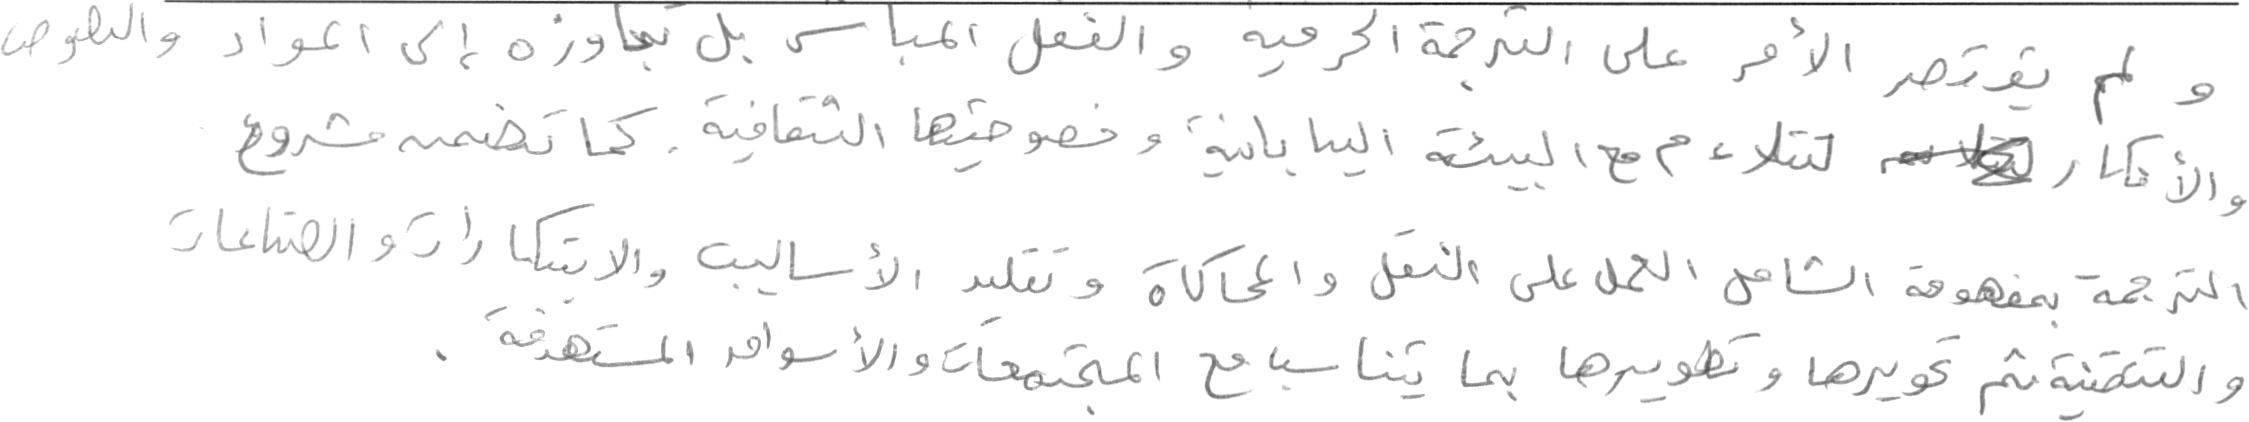 و لم يقتصر الأمر على الترجمة الحرفية والنقل المباشر بل تجاوزه إلى المواد والنصوص
والأفكار لتتلاءم مع البيئة اليابانية وخصوصيتها الثقافية. كما تضمن مشروع
الترجمة بمفهومه الشامل العمل على النقل والمحاكاة وتقليد الأساليب والابتكارات والصناعات
والتقنية ثم تحويرها وتطويرها بما يتناسب مع المجتمعات والأسواق المستهدفة.